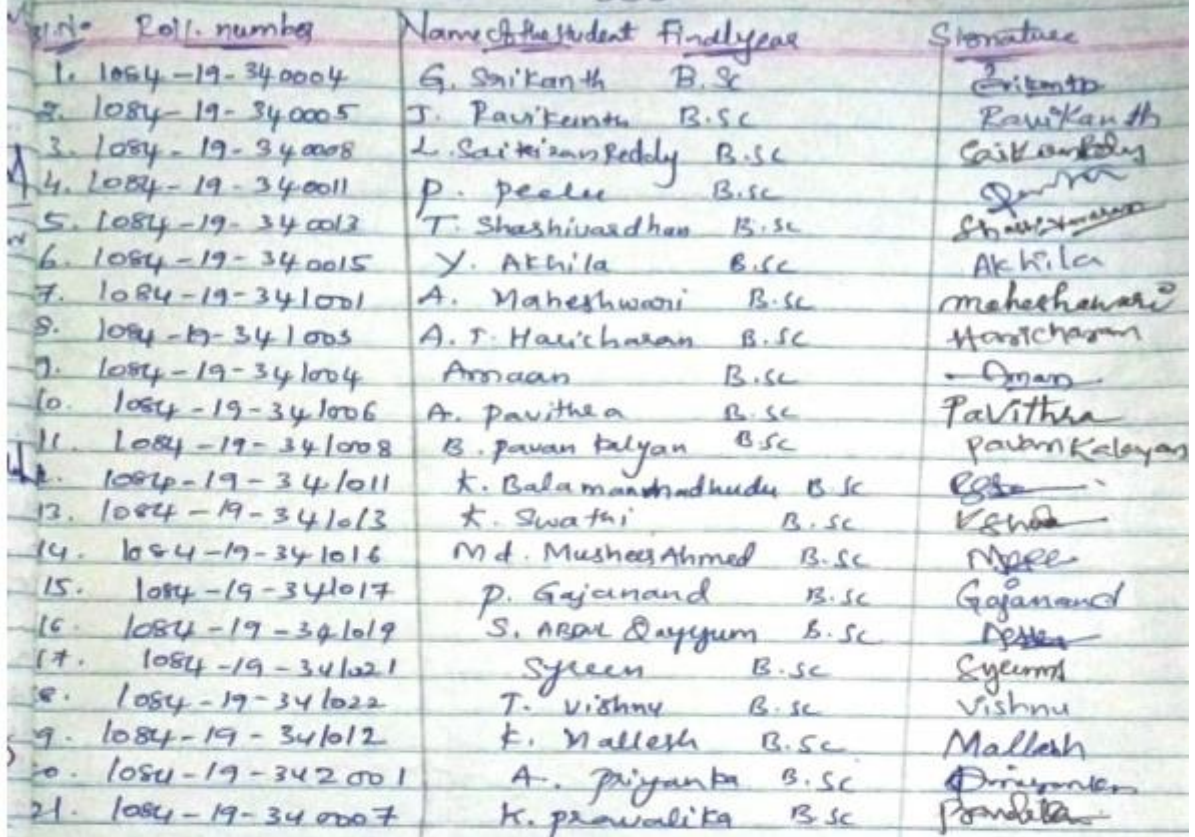 Sl.No Roll. number Name of the student Final year Signature
1. 1084-19-340004 G. Srikanth B.Sc Srikanth
2. 1084-19-340005 J. Ravikanth B.Sc RaviKanth
3. 1084-19-340008 L. Saikiran Reddy B.Sc
4. 1084-19-340011 P. Peelu B.Sc
5. 1084-19-340013 T. Shashivardhan B.Sc
6. 1084-19-340015 Y. Akhila B.Sc Akhila
7. 1084-19-341001 A. Maheshwari B.Sc maheshawari
8. 1084-19-341003 A.T. Haricharan B.Sc Haricharan
9. 1084-19-341004 Amaan B.Sc Aman
10. 1084-19-341006 A. Pavithra B.Sc Pavithra
11. 1084-19-341008 B. Pavan kalyan B.Sc pavan Kalayan
1084-19-341011 K. Balamanmadhudu B.Sc
13. 1084-19-341013 K. Swathi B.Sc
14. 1084-19-341016 Md. Musheer Ahmed B.Sc
15. 1084-19-341017 P. Gajanand B.Sc Gajanand
16 1084-19-341019 S. ABDUL Qayyum B.Sc
17. 1084-19-341021 Syreen B.Sc
8. 1084-19-341022 T. Vishnu B.Sc Vishnu
9. 1084-19-341012 K. Mallesh B.Sc Mallesh
0. 1084-19-342001 A. Priyanka B.Sc Priyanka
21. 1084-19-340007 K. prawalika B.Sc